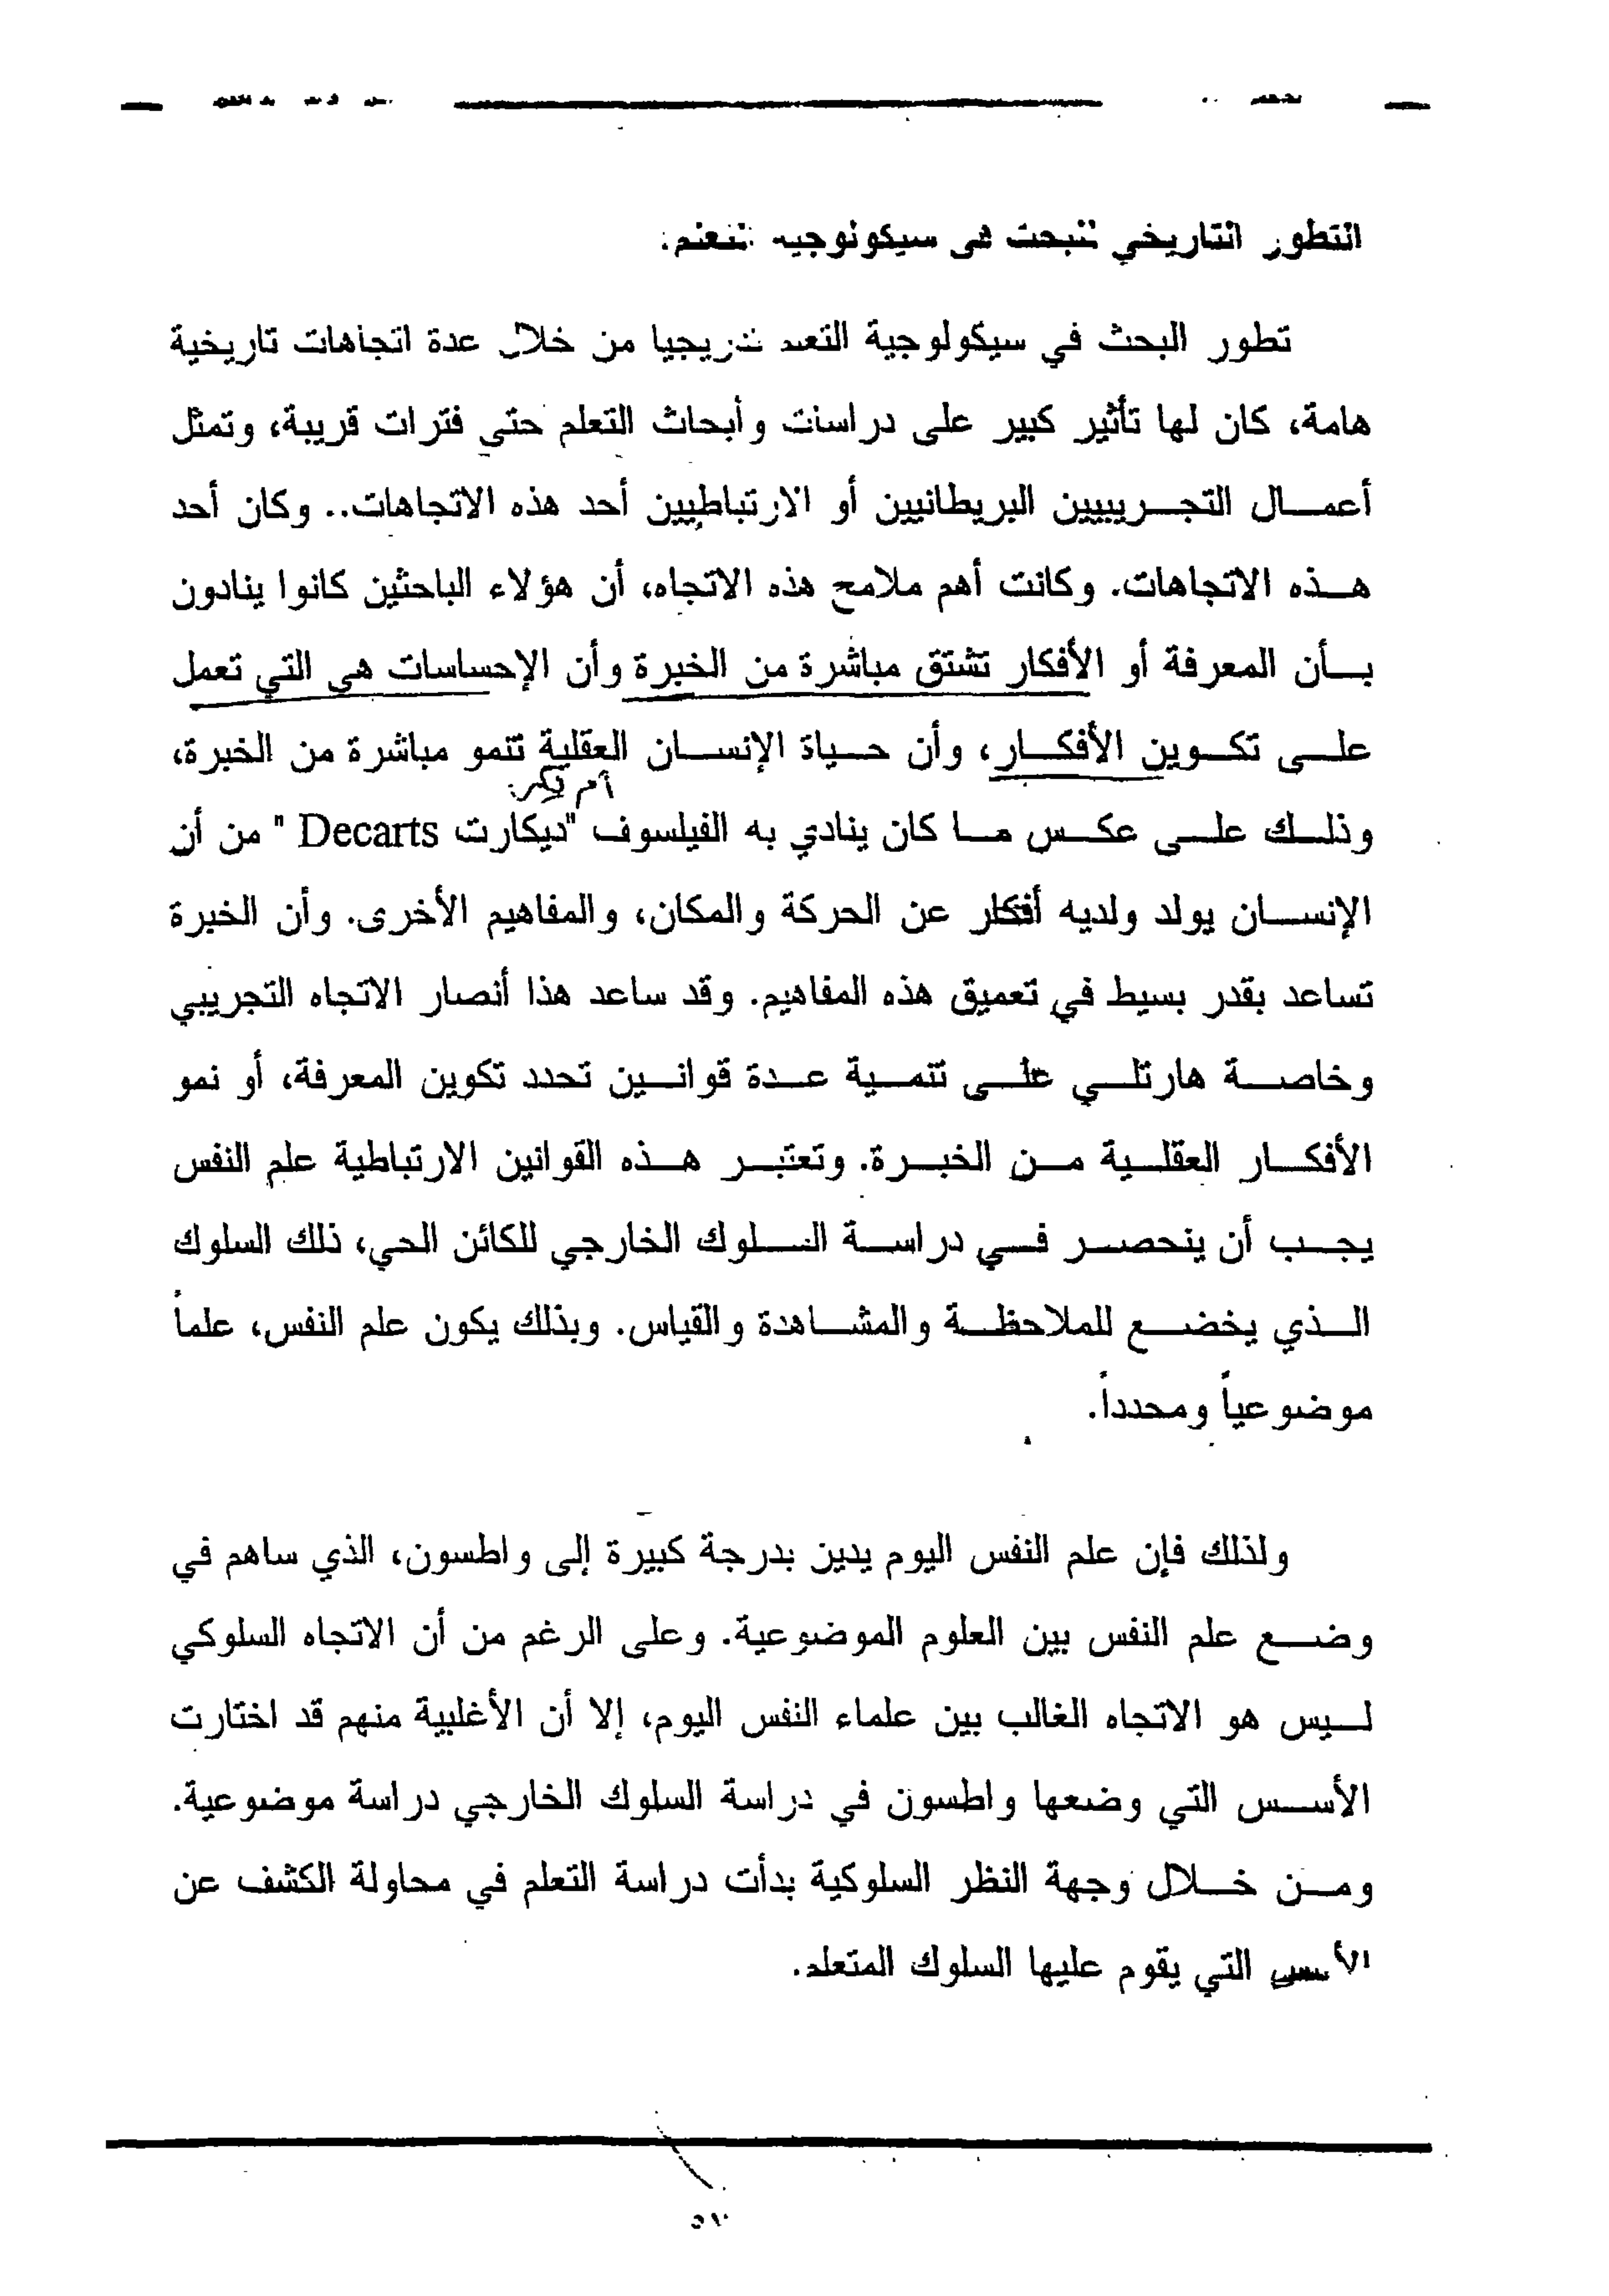 التطور التاريخي للبحث في سيكولوجية التعلم:
تطور البحث في سيكولوجية التعلم تدريجيا من خلال عدة اتجاهات تاريخية
هامة، كان لها تأثير كبير على دراسات وأبحاث التعلم حتى فترات قريبة، وتمثل
أعمال التجريبيين البريطانيين أو الارتباطيين أحد هذه الاتجاهات.. وكان أحد
هذه الاتجاهات. وكانت أهم ملامح هذه الاتجاه، أن هؤلاء الباحثين كانوا ينادون
بأن المعرفة أو الأفكار تشتق مباشرة من الخبرة وأن الإحساسات هي التي تعمل
على تكوين الأفكار، وأن حياة الإنسان العقلية تنمو مباشرة من الخبرة،
وذلك على عكس ما كان ينادي به الفيلسوف "ديكارت Decarts " من أن
الإنسان يولد ولديه أفكار عن الحركة والمكان، والمفاهيم الأخرى. وأن الخبرة
تساعد بقدر بسيط في تعميق هذه المفاهيم. وقد ساعد هذا أنصار الاتجاه التجريبي
وخاصة هارتلي على تنمية عدة قوانين تحدد تكوين المعرفة، أو نمو
الأفكار العقلية من الخبرة. وتعتبر هذه القوانين الارتباطية علم النفس
يجب أن ينحصر في دراسة السلوك الخارجي للكائن الحي، ذلك السلوك
الذي يخضع للملاحظة والمشاهدة والقياس. وبذلك يكون علم النفس، علماً
موضوعياً ومحدداً.
ولذلك فإن علم النفس اليوم يدين بدرجة كبيرة إلى واطسون، الذي ساهم في
وضع علم النفس بين العلوم الموضوعية. وعلى الرغم من أن الاتجاه السلوكي
ليس هو الاتجاه الغالب بين علماء النفس اليوم، إلا أن الأغلبية منهم قد اختارت
الأسس التي وضعها واطسون في دراسة السلوك الخارجي دراسة موضوعية.
ومن خلال وجهة النظر السلوكية بدأت دراسة التعلم في محاولة الكشف عن
الأسس التي يقوم عليها السلوك المتعلم.